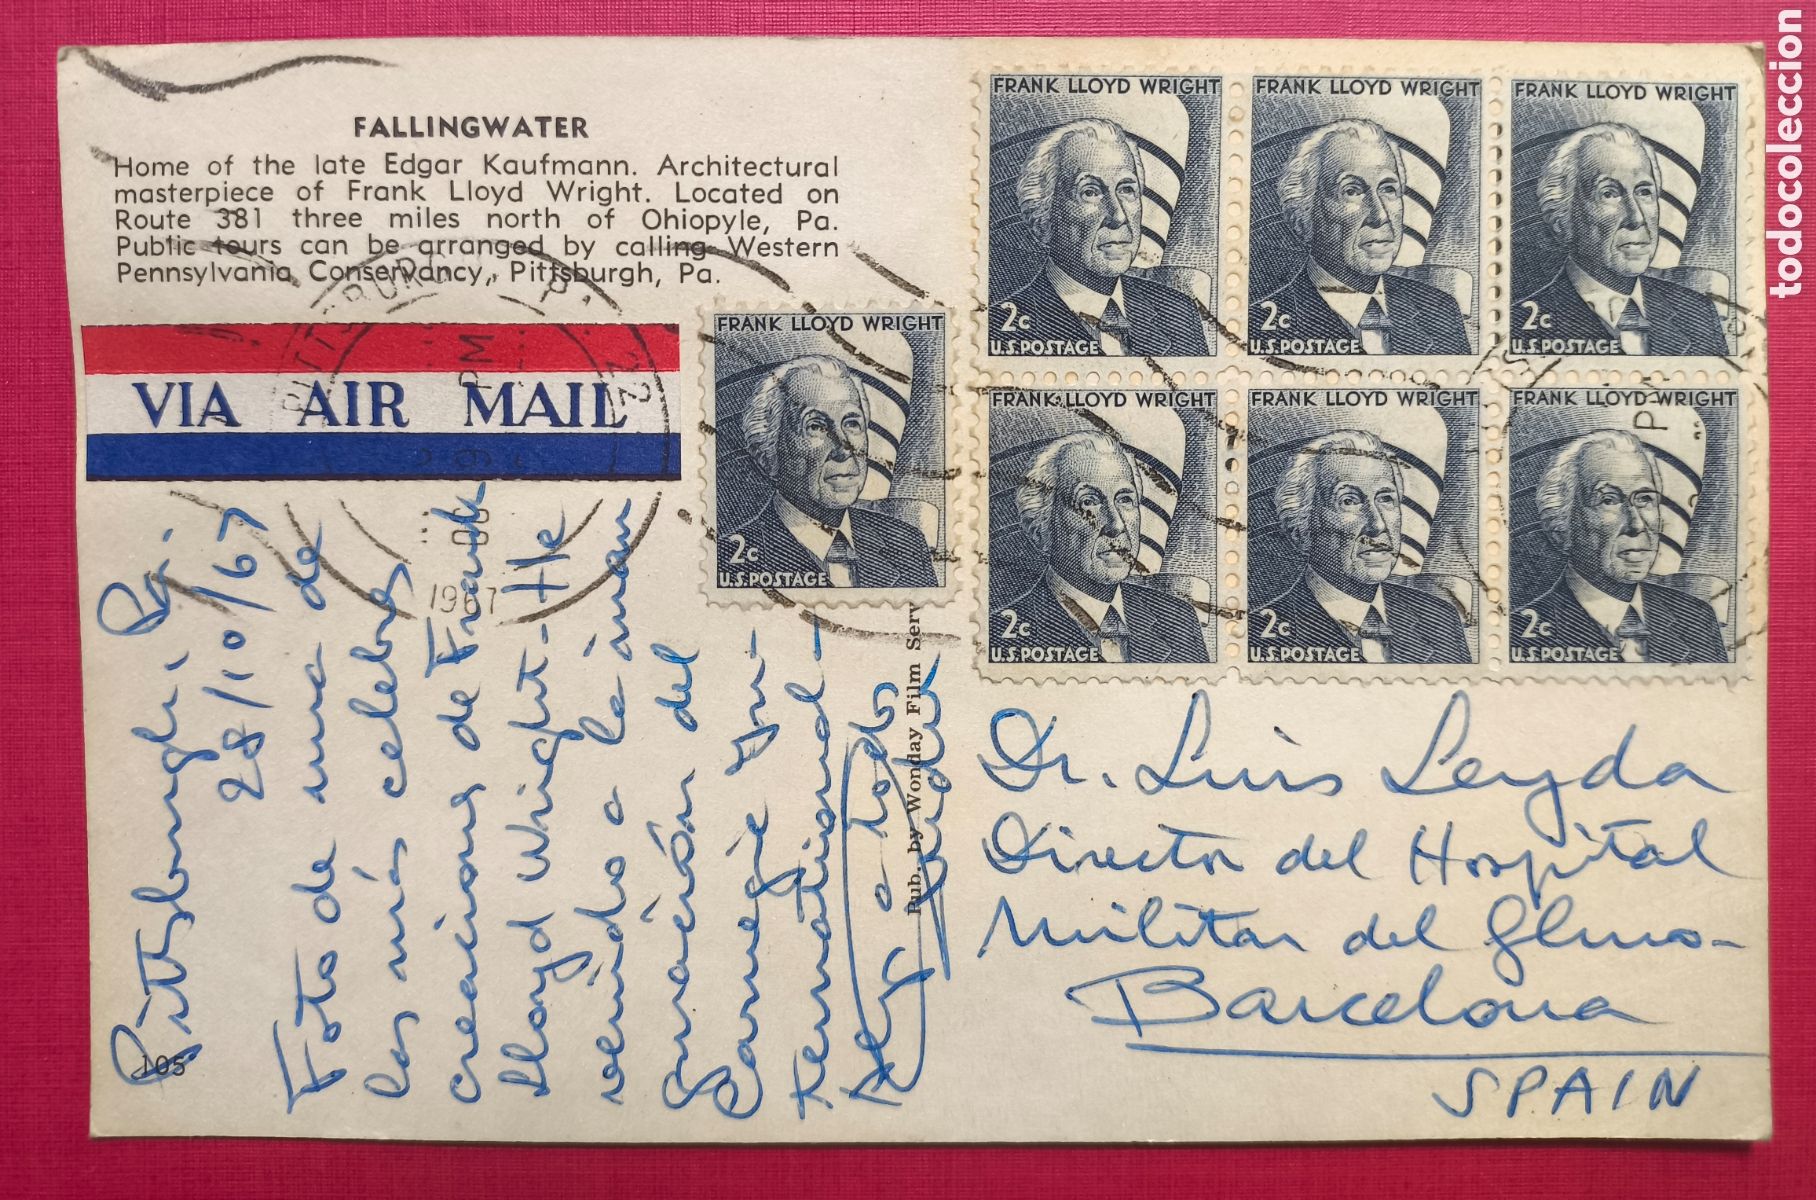 FALLINGWATER
Home of the late Edgar Kaufmann. Architectural
masterpiece of Frank Lloyd Wright. Located on
Route 381 three miles north of Ohiopyle, Pa.
Public tours can be arranged by calling Western
Pennsylvania Conservancy, Pittsburgh, Pa.
VIA AIR MAIL
PITTSBURGH, PA.
PM
1967
FRANK LLOYD WRIGHT
2c
U.S.POSTAGE
FRANK LLOYD WRIGHT
2c
U.S.POSTAGE
FRANK LLOYD WRIGHT
2c
U.S.POSTAGE
FRANK LLOYD WRIGHT
2c
U.S.POSTAGE
FRANK LLOYD WRIGHT
2c
U.S.POSTAGE
FRANK LLOYD WRIGHT
2c
U.S.POSTAGE
FRANK LLOYD WRIGHT
2c
U.S.POSTAGE
Pittsburgh, Pa.
28/10/67
Foto de una de
las más celebres
creacions de Frank
Lloyd Wright - He
venido a la inau
guración del
Carnegie In-
ternational -
a todos
Pub. by Wonday Film Serv
105
Dr. Luis Leyda
Director del Hospital
Militar del Glmo-
Barcelona
SPAIN
todocoleccion